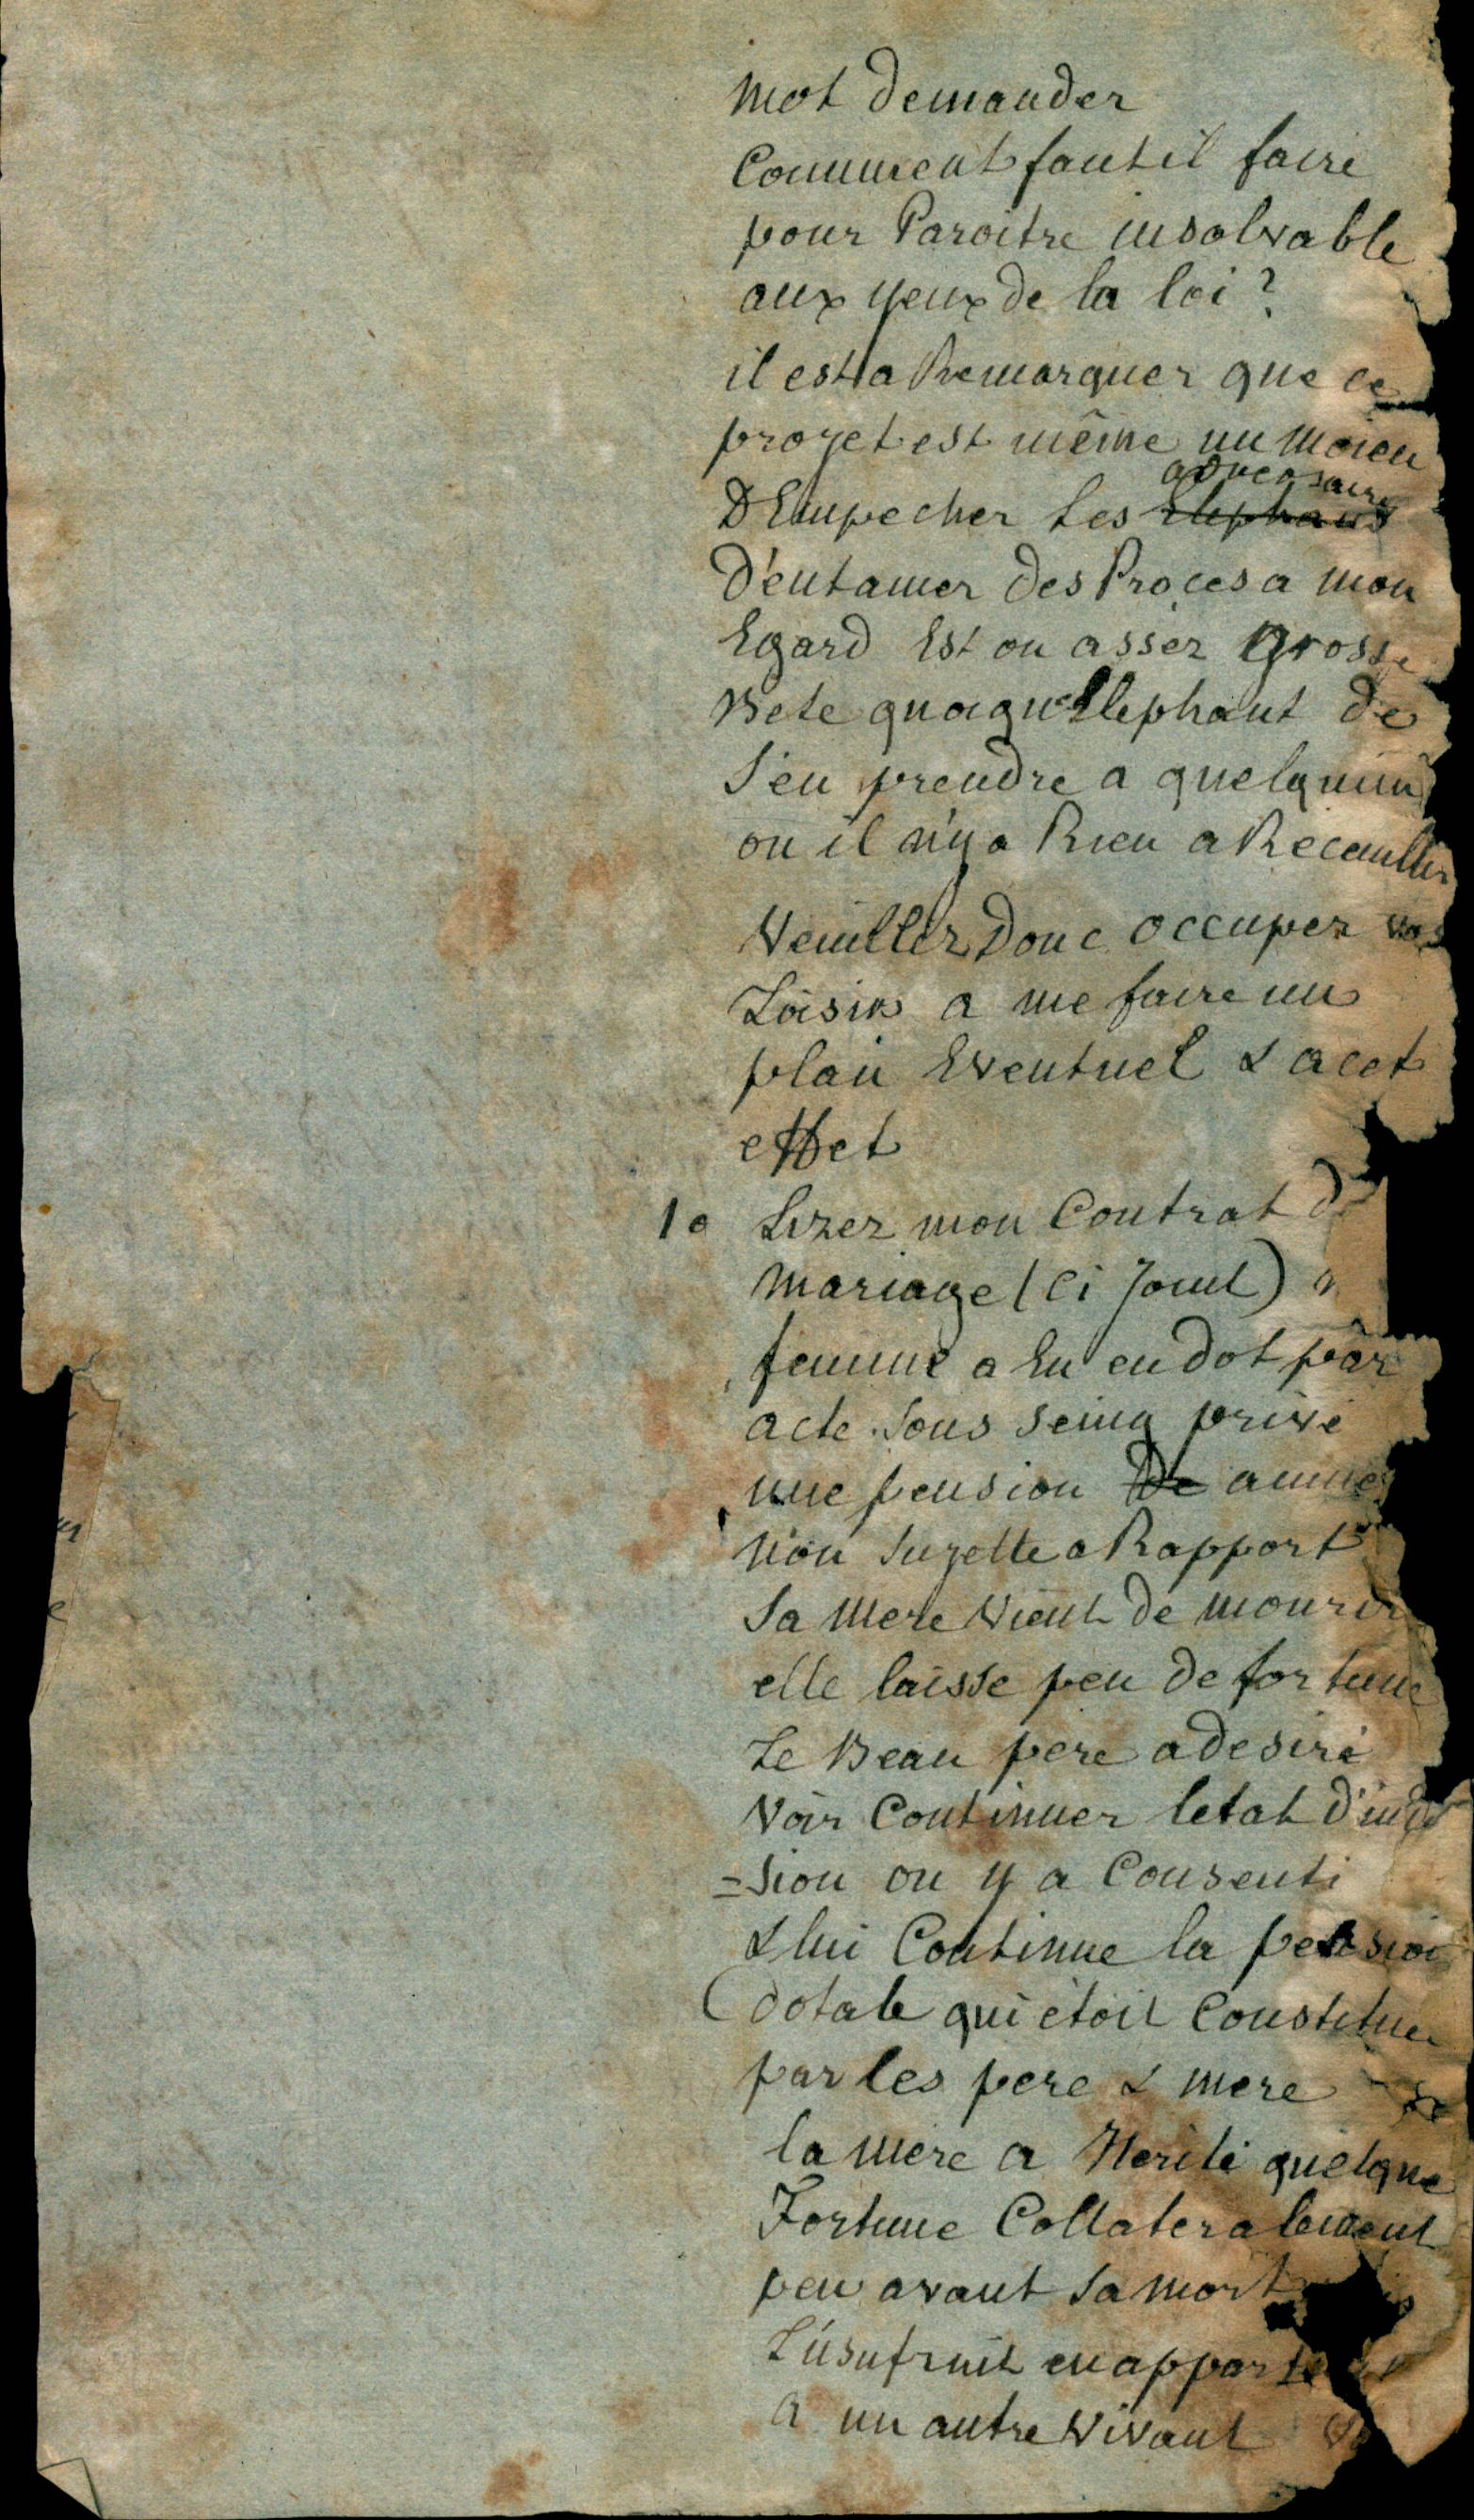 mot demander
Comment faut il faire
pour Paroitre insolvable
aux yeux de la loi ?
il est a Remarquer que ce
projet est même un moien
adversaires
D Empecher Les Elephans
D'entamer des Proces a mon
Egard Est on assez grosse
Bete quoiqu'Elephant de
s'en prendre a quelqu'un
ou il n'y a Rien a Recueillir
Veuillez Donc occuper vos
Loisirs a me faire un
plan Eventuel & a cet
effet
1o Lizez mon Contrat de
mariage (Ci Joint)
femme a Eu en dot par
acte sous seing privé
une pension De
non sujette a Rapport
Sa Mere vient de mourir
elle laisse peu de fortune
Le Beau pere a desiré
voir Continuer letat d'indi
=sion on y a Consenti
& lui Continue la pension
dotale qui étoit Constituee
par les pere & mere
la mere a Herité quelque
Fortune Collateralement
peu avant sa mort
L'usufruit en appartenant
a un autre vivant